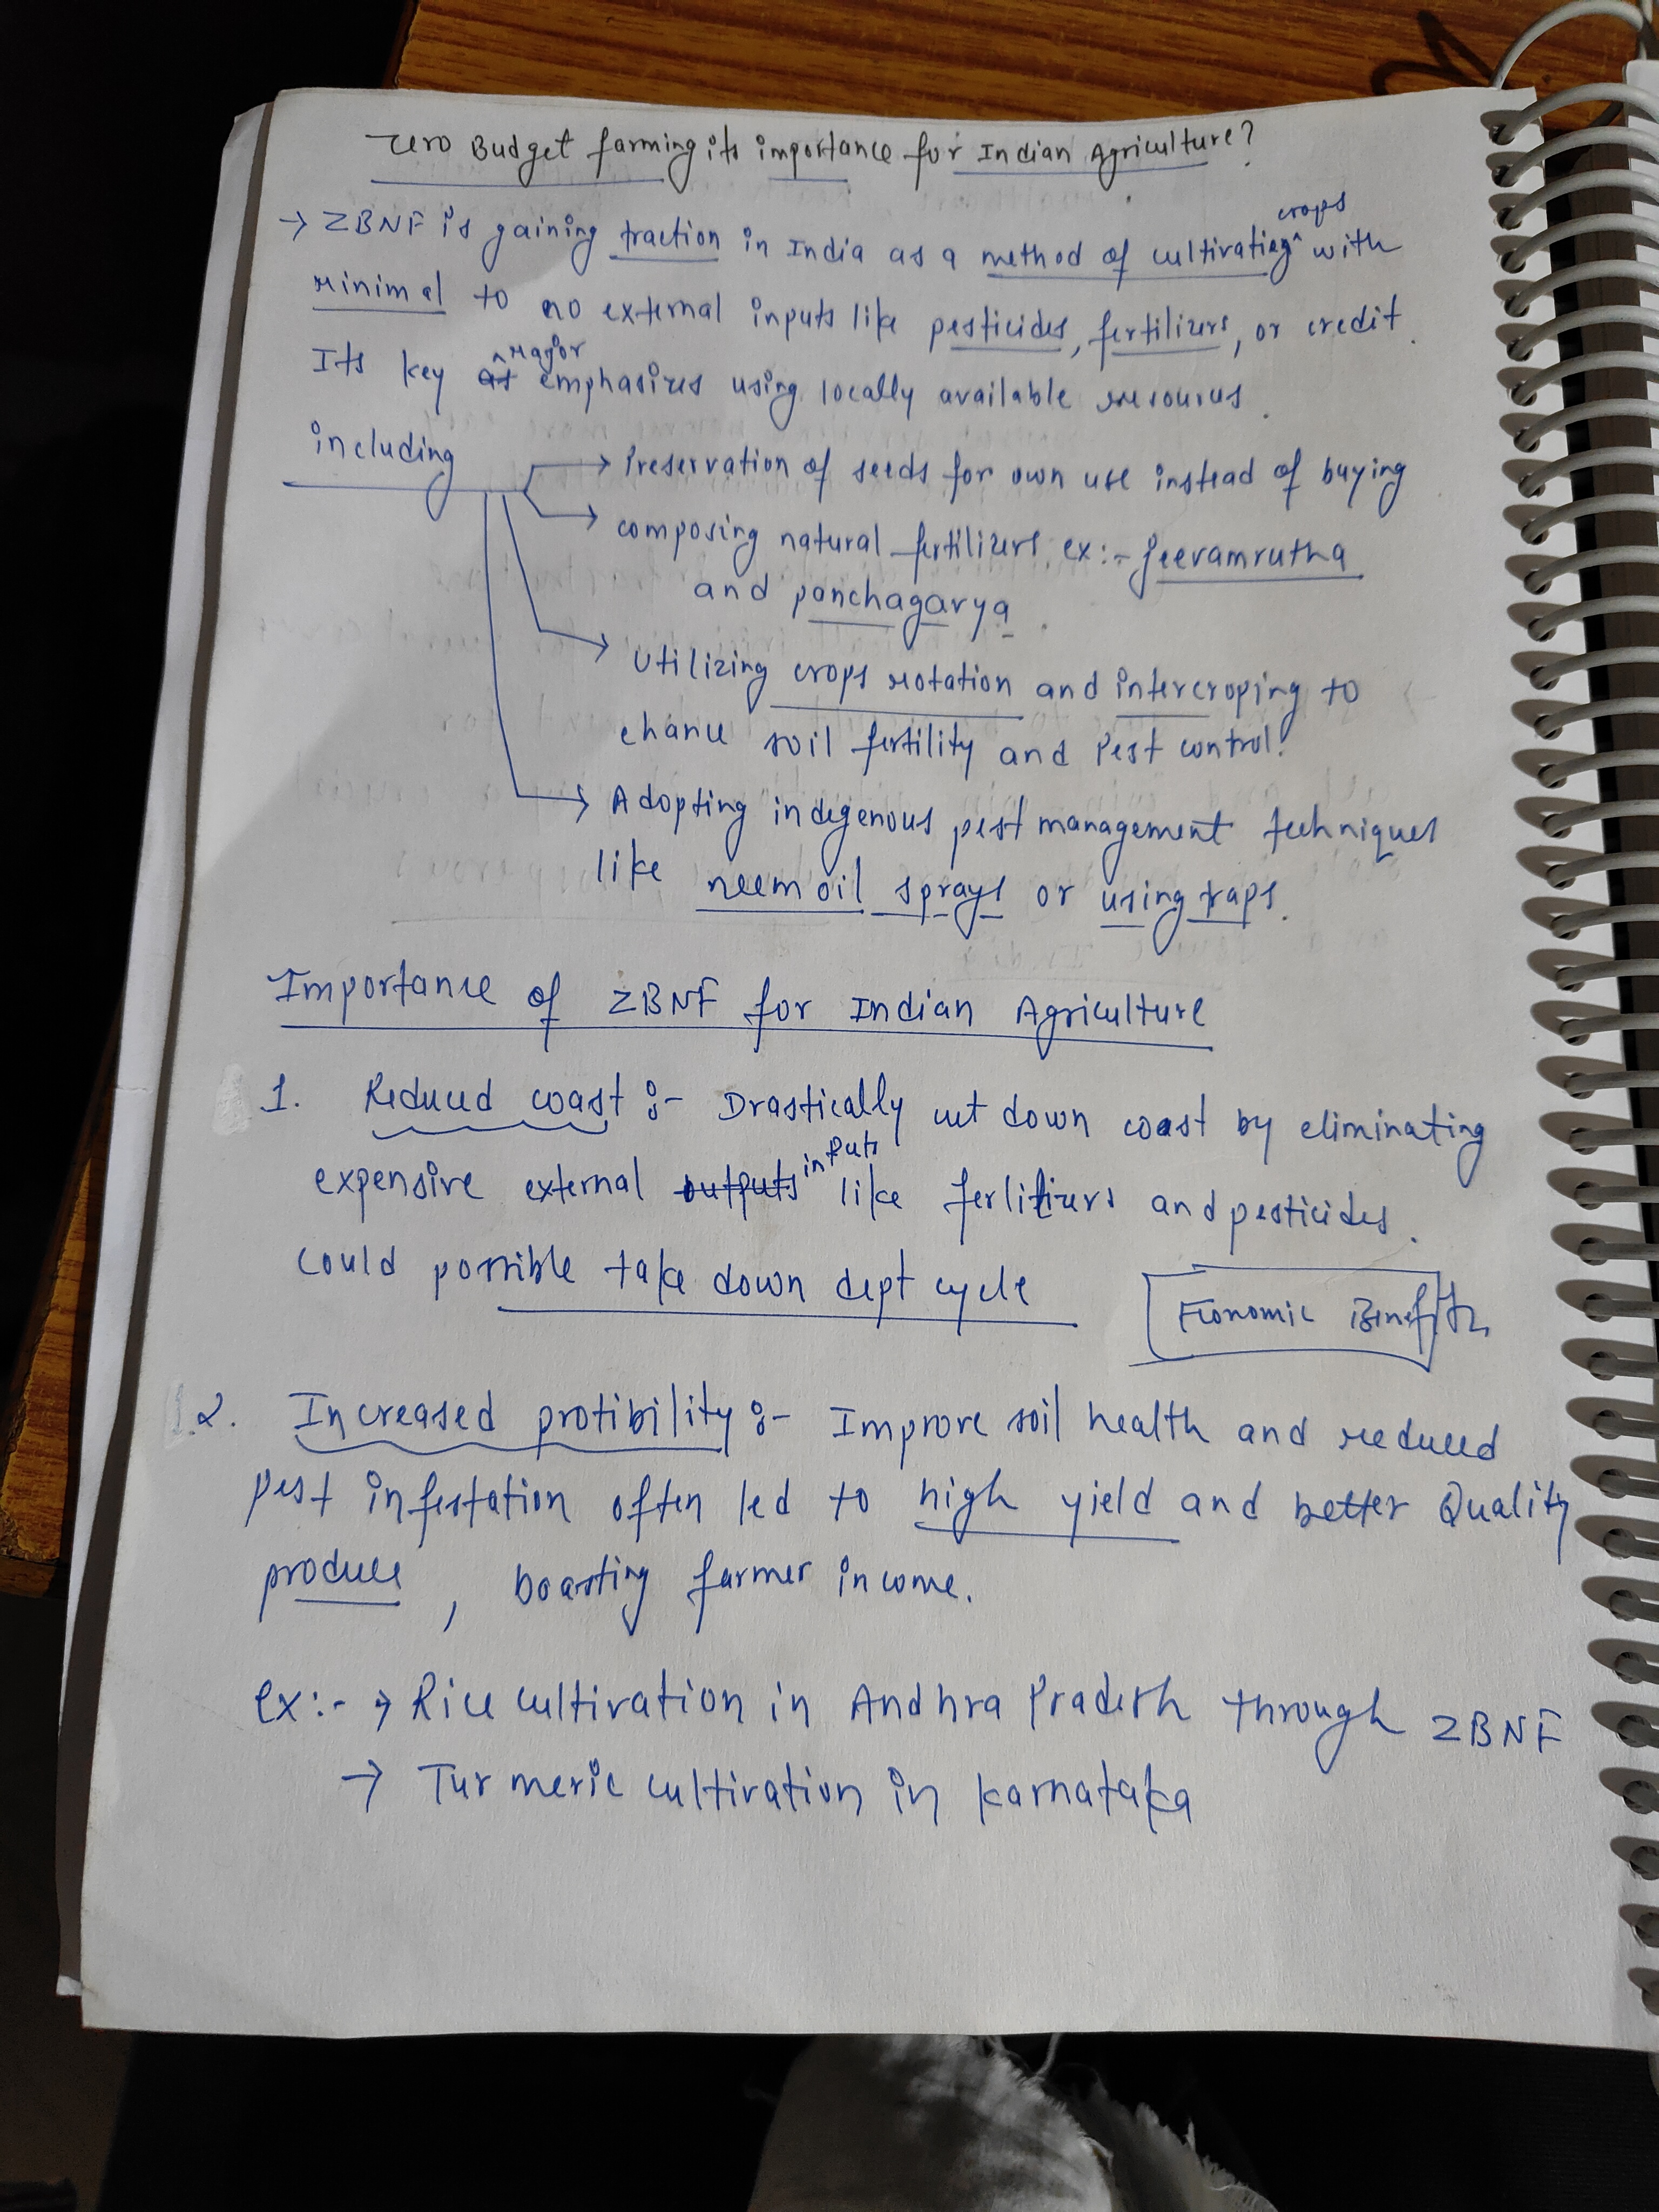 Zero Budget farming its importance for Indian Agriculture?
→ ZBNF is gaining traction in India as a method of cultivating crops with
minimal to no external inputs like pesticides, fertilizers, or credit.
Its key major emphasizes using locally available resources.
including
→ Preservation of seeds for own use instead of buying
→ composing natural fertilizers ex:- Jeevamrutha
and panchagavya.
→ Utilizing crops rotation and intercroping to
ehance soil fertility and Pest control.
→ Adopting indegenous pest management techniques
like neem oil sprays or using traps.
Importance of ZBNF for Indian Agriculture
1. Reduced coast :- Drastically cut down coast by eliminating
expensive external outputs inputs like fertilizers and pesticides.
could possible take down dept cycle
Economic Benefits
2. Increased protibility :- Improve soil health and reduced
pest infestation often led to high yield and better Quality
produce, boasting farmer income.
ex:- → Rice cultivation in Andhra Pradesh through ZBNF
→ Turmeric cultivation in Karnataka